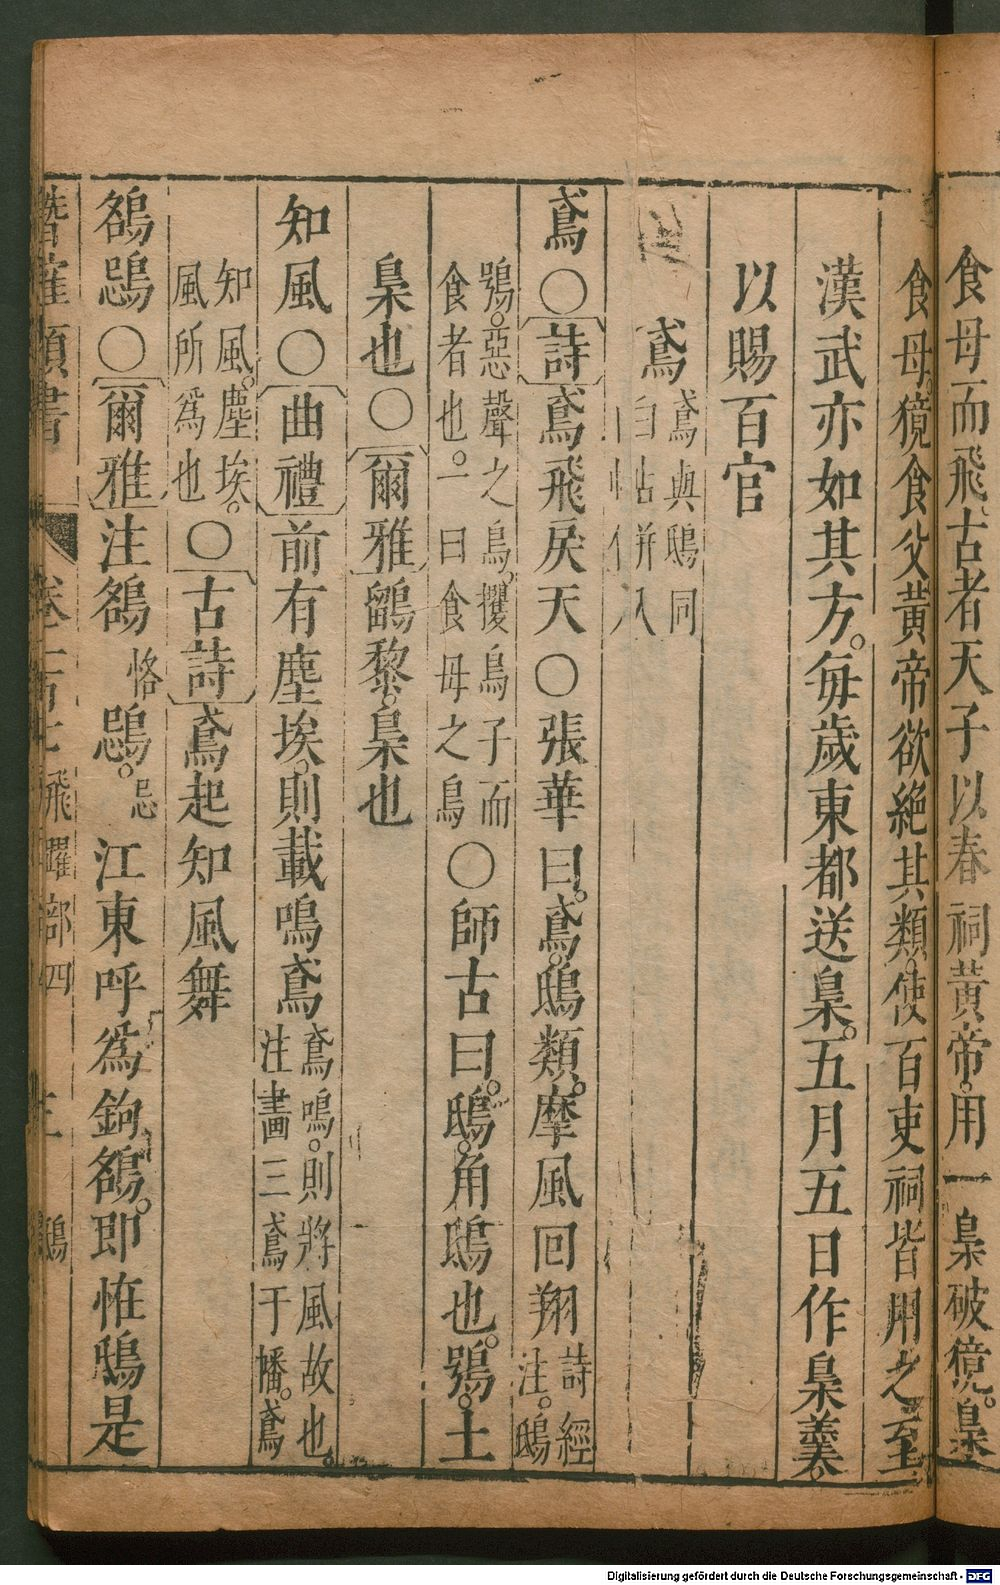 食母而飛。古者天子以春祠黃帝。用一梟破獍。梟
食母。獍食父黃帝欲絶其類。使百吏祠皆用之至
漢武亦如其方。每歲東都送梟。五月五日作梟羹。
以賜百官
鳶
鳶與鴟同
自帖併入
鳶○詩鳶飛戾天○張華曰。鳶。鴟類。摩風回翔
詩經
注。鴟
鴞。惡聲之鳥。攫鳥子而
食者也。一曰食母之鳥
○師古曰。鴟。角鴟也。鴞。土
梟也○爾雅鶹黎。梟也
知風○曲禮前有塵埃。則載鳴鳶
鳶鳴。則將風故也。
注畫三鳶于幡。鳶
知風。塵埃。
風所爲也
○古詩鳶起知風舞
鵅鵋○爾雅注鵅恪鵋。忌江東呼爲鉤鵅。即恠鴟是
潛確類書
飛躍部四
鴟
Digitalisierung gefördert durch die Deutsche Forschungsgemeinschaft - DFG